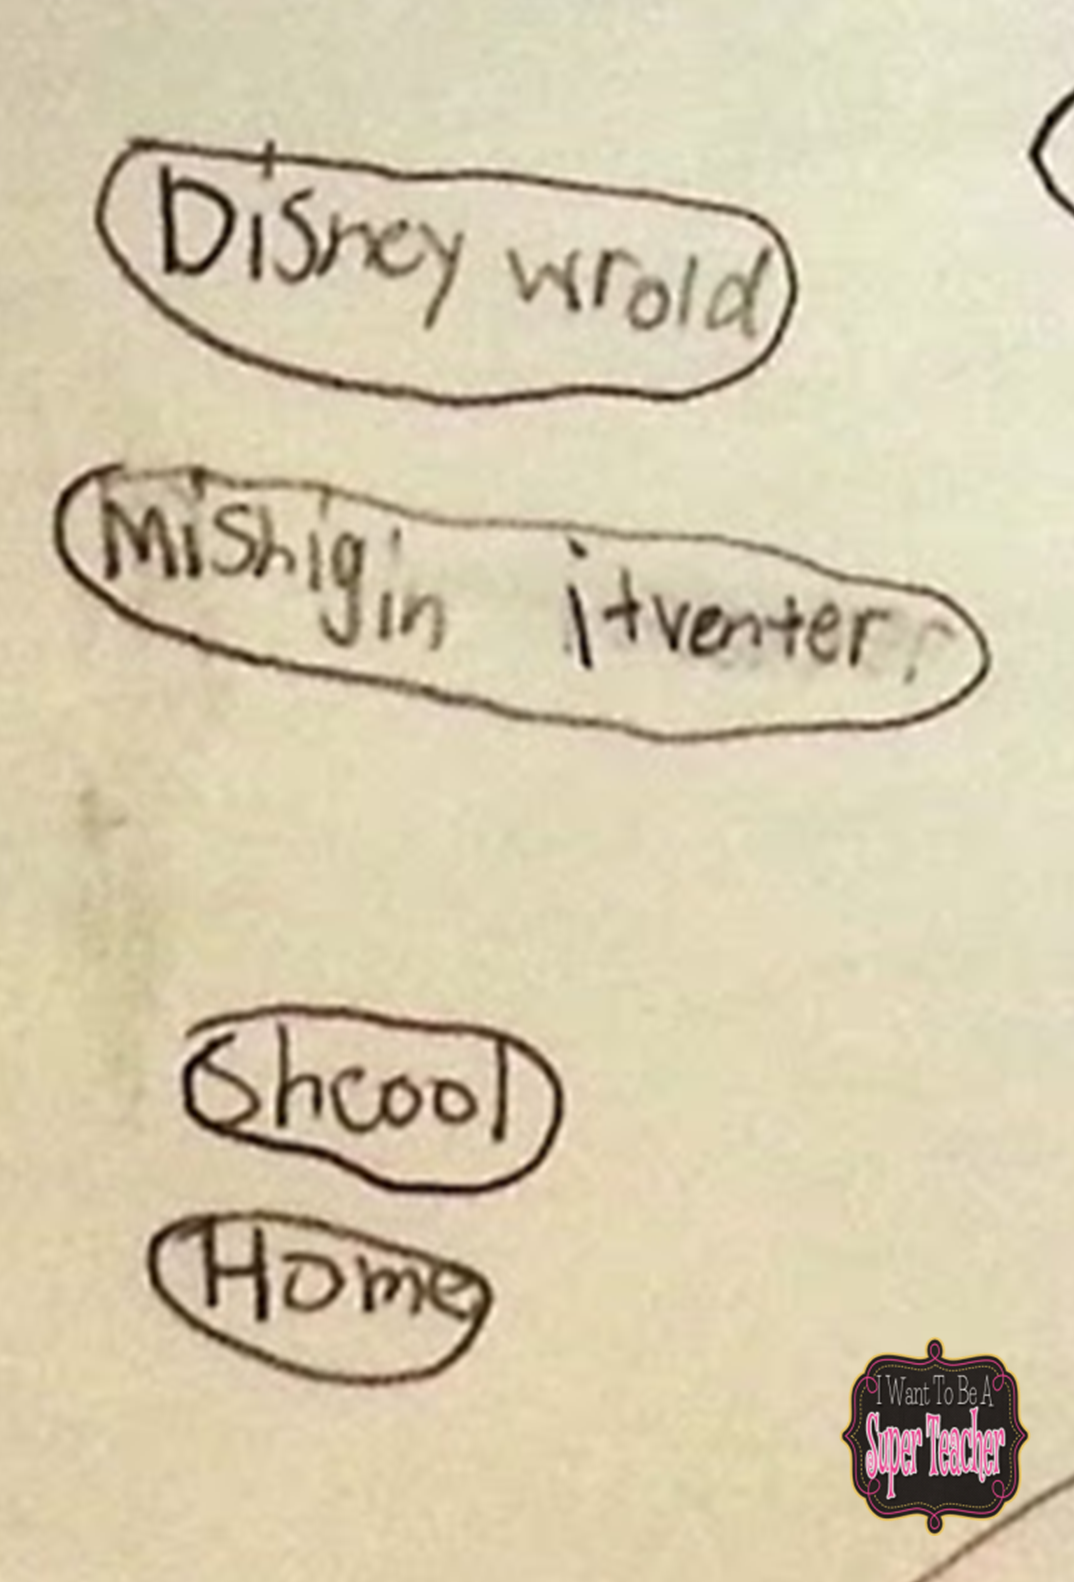 Disney wrold
Mishigin itventer
Shcool
Home
I Want To Be A
Super Teacher